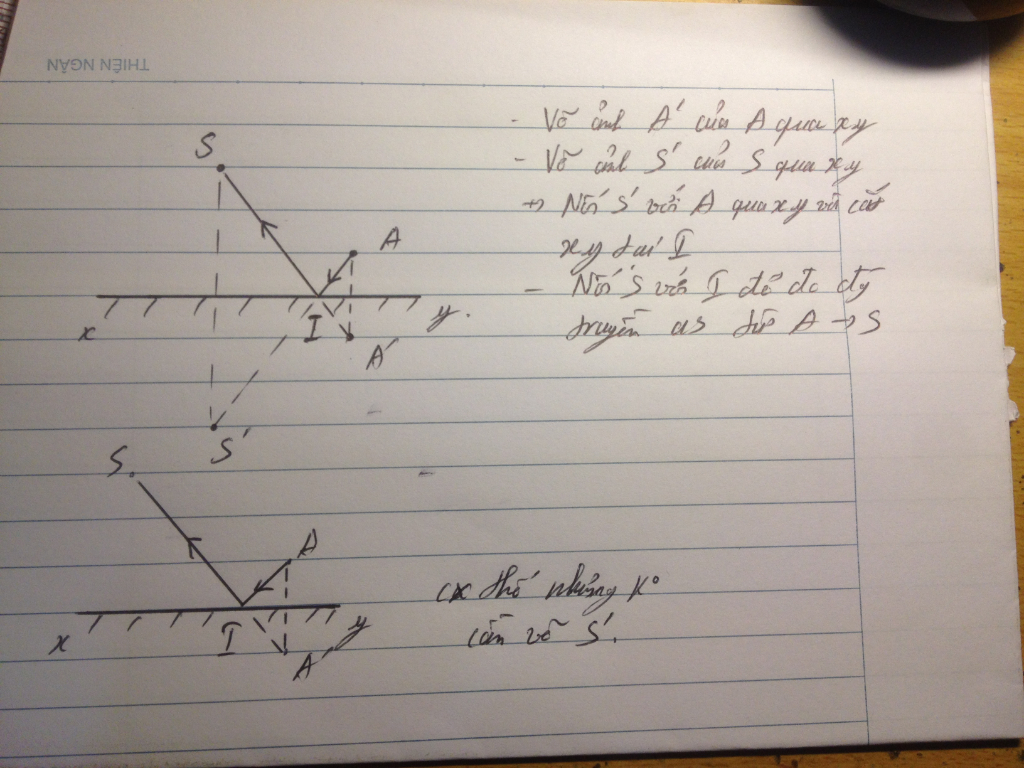 THIÊN NGÂN
- Vẽ ảnh A' của A qua xy
- Vẽ ảnh S' của S qua xy
→ Nối S' với A qua xy và cắt
xy tại I
- Nối S với I để đc đg
truyền as từ A → S
S
A
x
I
y.
A'
S'
S.
A
x
I
y
A'
cx thế nhưng k°
cần vẽ S'.